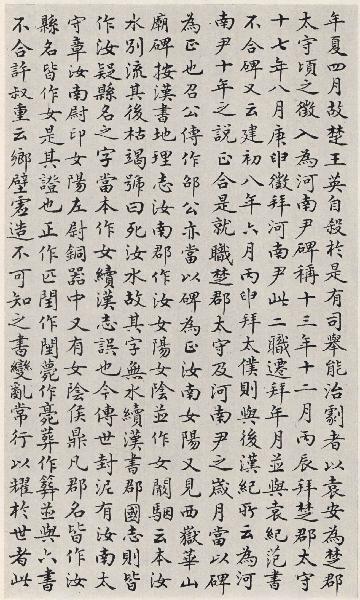 年夏四月故楚王英自殺於是有司舉能治劇者以袁安為楚郡
太守頃之徵入為河南尹碑稱十三年十二月丙辰拜楚郡太守
十七年八月庚申徵拜河南尹此二職遷拜年月並與袁紀范書
不合碑又云建初八年六月丙申拜太僕則與後漢紀所云為河
南尹十年之說正合是就職楚郡太守及河南尹之歲月當以碑
為正也召公傳作邵公亦當以碑為正汝南女陽又見西嶽華山
廟碑按漢書地理志汝南郡作汝女陽女陰並作女闞駰云本汝
水別流其後枯竭號曰死汝水故其字無水續漢書郡國志則皆
作汝疑縣名之字當本作女續漢志誤也今傳世封泥有汝南太
守章汝南尉印女陽左尉銅器中又有女陰侯鼎凡郡名皆作汝
縣名皆作女是其證也正作匹閏作閠薨作薧葬作葬並與六書
不合許叔重云鄉壁虛造不可知之書變亂常行以燿於世者此